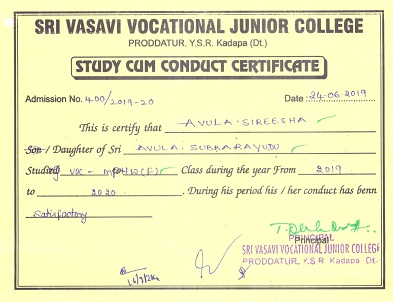 SRI VASAVI VOCATIONAL JUNIOR COLLEGE
PRODDATUR, Y.S.R. Kadapa (Dt.)
STUDY CUM CONDUCT CERTIFICATE
Admission No. 400/2019-20 Date : 24-06-2019
This is certify that AVULA. SIREESHA
Son / Daughter of Sri AVULA. SUBBARAYUDU
Studied VOC - MPHW(F) Class during the year From 2019
to 2020 . During his period his / her conduct has benn
Satisfactory
Principal
PRINCIPAL
SRI VASAVI VOCATIONAL JUNIOR COLLEGE
PRODDATUR, Y.S.R Kadapa Dt.